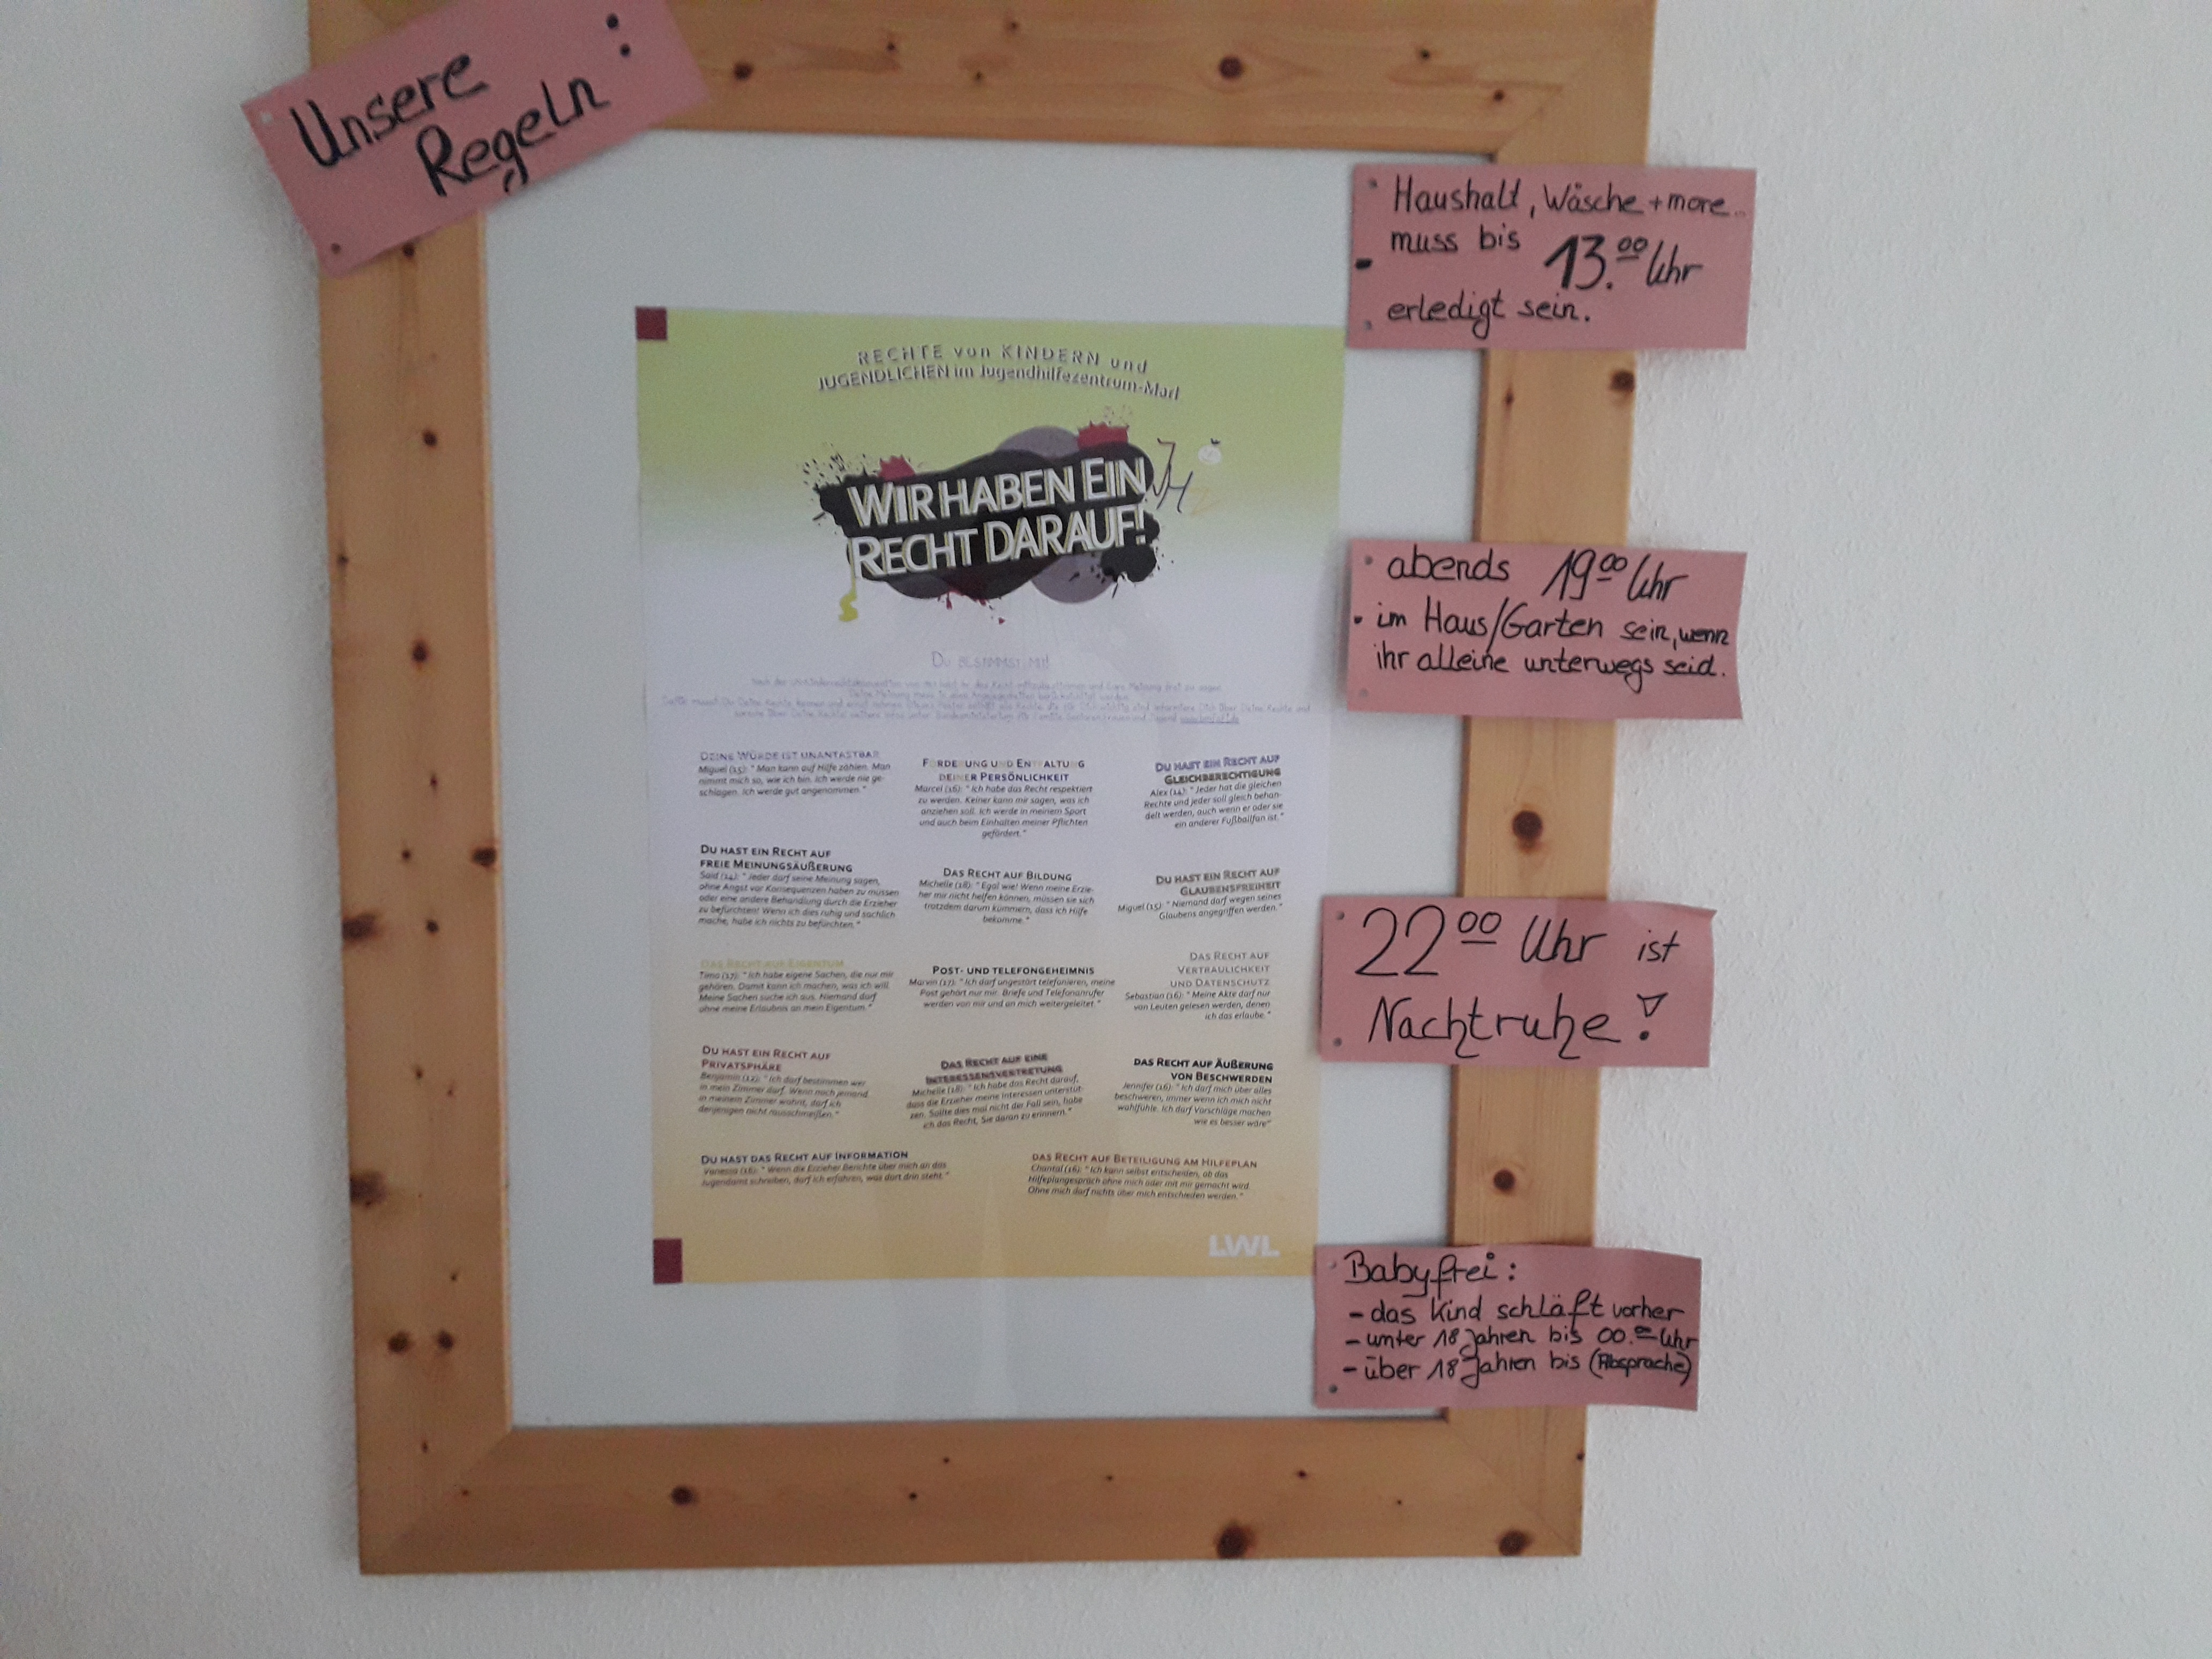 Unsere
Regeln :
Haushalt, Wäsche + more...
muss bis 13.00 Uhr
erledigt sein.
abends 19.00 Uhr
im Haus/Garten sein, wenn
ihr alleine unterwegs seid.
22.00 Uhr ist
Nachtruhe!
Babyfrei:
- das Kind schläft vorher
- unter 18 Jahren bis 00.00 Uhr
- über 18 Jahren bis (Absprache)
RECHTE von KINDERN und
JUGENDLICHEN im Jugendhilfezentrum-Marl
WIR HABEN EIN
RECHT DARAUF!
JHZ
DU BESTIMMST MIT!
DEINE WÜRDE IST UNANTASTBAR
Miguel (15): "Man kann auf Hilfe zählen. Man
nimmt mich so, wie ich bin. Ich werde nie ge-
schlagen. Ich werde gut angenommen."
FÖRDERUNG UND ENTFALTUNG
DEINER PERSÖNLICHKEIT
Marcel (16): "Ich habe das Recht respektiert
zu werden. Keiner kann mir sagen, was ich
anziehen soll. Ich werde in meinem Sport
und auch beim Einhalten meiner Pflichten
gefördert."
DU HAST EIN RECHT AUF
GLEICHBERECHTIGUNG
Alex (14): "Jeder hat die gleichen
Rechte und jeder soll gleich behan-
delt werden, auch wenn er oder sie
ein anderer Fußballfan ist."
DU HAST EIN RECHT AUF
FREIE MEINUNGSÄUßERUNG
Said (14): "Jeder darf seine Meinung sagen,
ohne Angst vor Konsequenzen haben zu müssen
oder eine andere Behandlung durch die Erzieher
zu befürchten! Wenn ich dies ruhig und sachlich
mache, habe ich nichts zu befürchten."
DAS RECHT AUF BILDUNG
Michelle (18): "Egal wie! Wenn meine Erzie-
her mir nicht helfen können, müssen sie sich
trotzdem darum kümmern, dass ich Hilfe
bekomme."
DU HAST EIN RECHT AUF
GLAUBENSFREIHEIT
Miguel (15): "Niemand darf wegen seines
Glaubens angegriffen werden."
DAS RECHT AUF EIGENTUM
Timo (17): "Ich habe eigene Sachen, die nur mir
gehören. Damit kann ich machen, was ich will.
Meine Sachen suche ich aus. Niemand darf
ohne meine Erlaubnis an mein Eigentum."
POST- UND TELEFONGEHEIMNIS
Marvin (17): "Ich darf ungestört telefonieren, meine
Post gehört nur mir. Briefe und Telefonanrufer
werden von mir und an mich weitergeleitet."
DAS RECHT AUF
VERTRAULICHKEIT
UND DATENSCHUTZ
Sebastian (16): "Meine Akte darf nur
von Leuten gelesen werden, denen
ich das erlaube."
DU HAST EIN RECHT AUF
PRIVATSPHÄRE
Benjamin (12): "Ich darf bestimmen wer
in mein Zimmer darf. Wenn noch jemand
in meinem Zimmer wohnt, darf ich
denjenigen nicht rausschmeißen."
DAS RECHT AUF EINE
INTERESSENSVERTRETUNG
Michelle (18): "Ich habe das Recht darauf,
dass die Erzieher meine Interessen unterstüt-
zen. Sollte dies mal nicht der Fall sein, habe
ich das Recht, Sie daran zu erinnern."
DAS RECHT AUF ÄUßERUNG
VON BESCHWERDEN
Jennifer (16): "Ich darf mich über alles
beschweren, immer wenn ich mich nicht
wohlfühle. Ich darf Vorschläge machen
wie es besser wäre"
DU HAST DAS RECHT AUF INFORMATION
Vanessa (16): "Wenn die Erzieher Berichte über mich an das
Jugendamt schreiben, darf ich erfahren, was dort drin steht."
DAS RECHT AUF BETEILIGUNG AM HILFEPLAN
Chantal (16): "Ich kann selbst entscheiden, ob das
Hilfeplangespräch ohne mich oder mit mir gemacht wird.
Ohne mich darf nichts über mich entschieden werden."
LWL